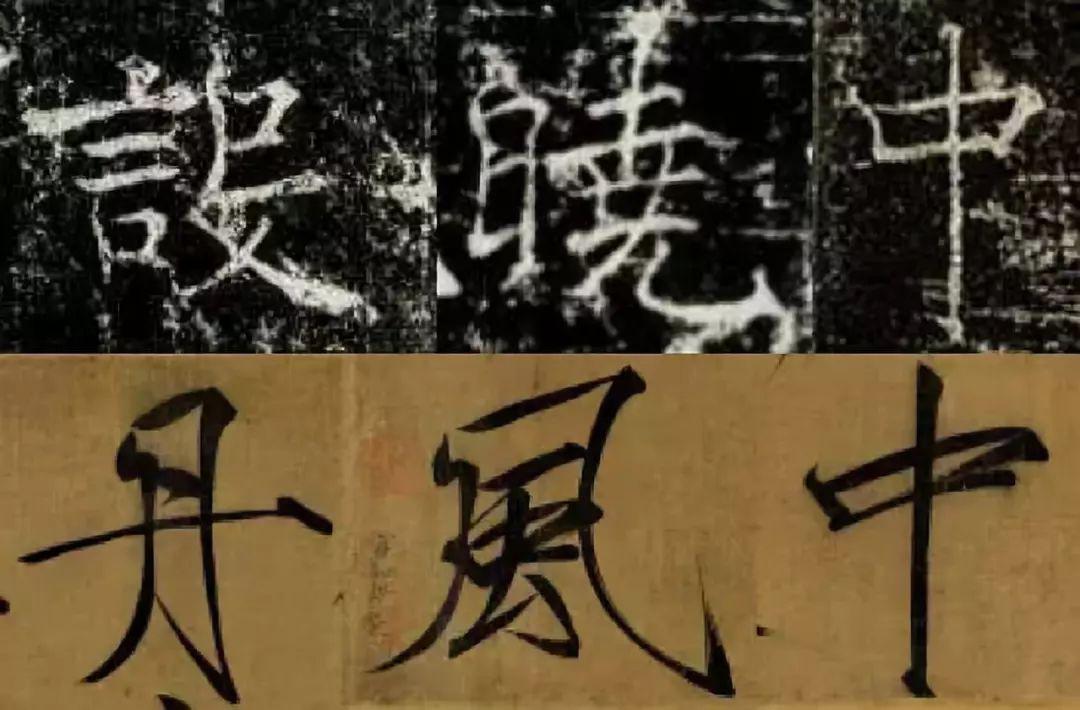 設曉中
丹風中